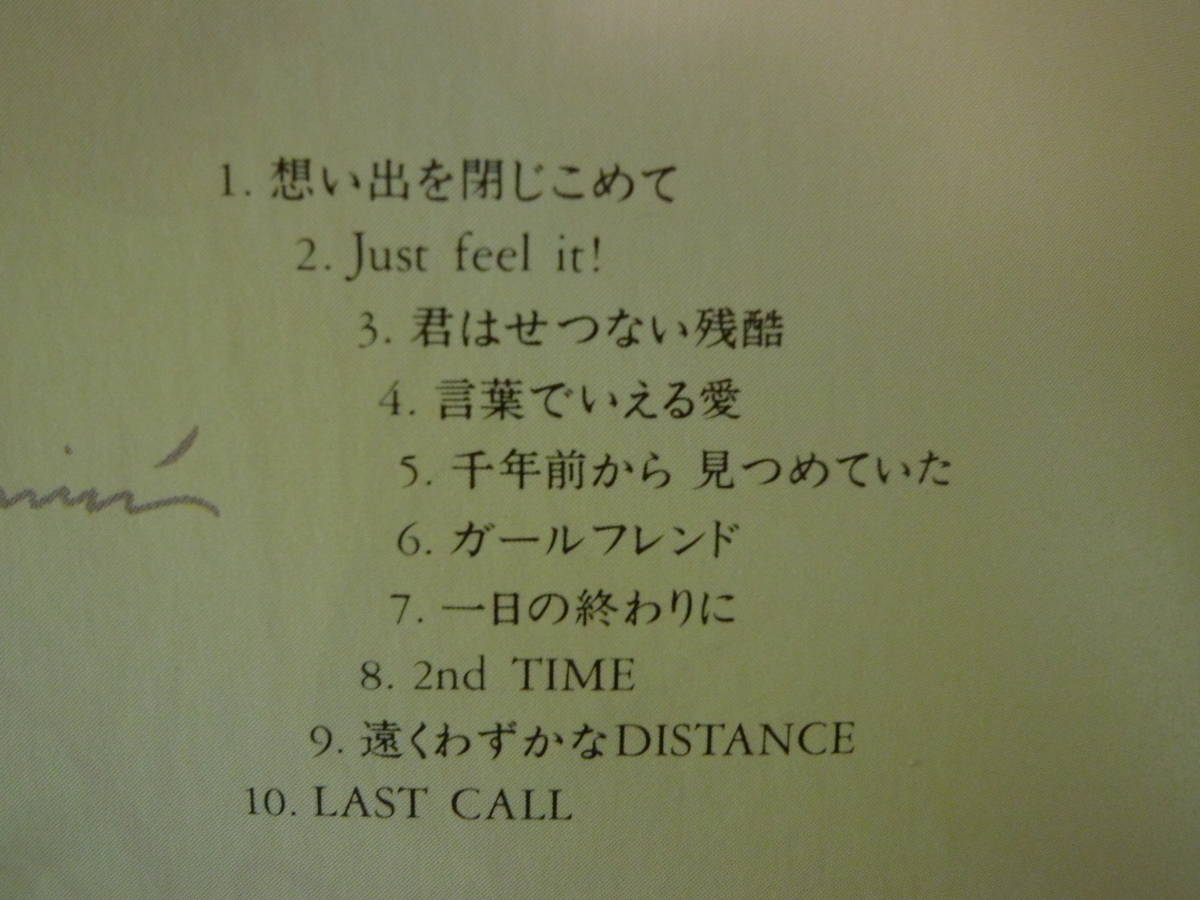 1. 想い出を閉じこめて
2. Just feel it!
3. 君はせつない残酷
4. 言葉でいえる愛
5. 千年前から 見つめていた
6. ガールフレンド
7. 一日の終わりに
8. 2nd TIME
9. 遠くわずかなDISTANCE
10. LAST CALL